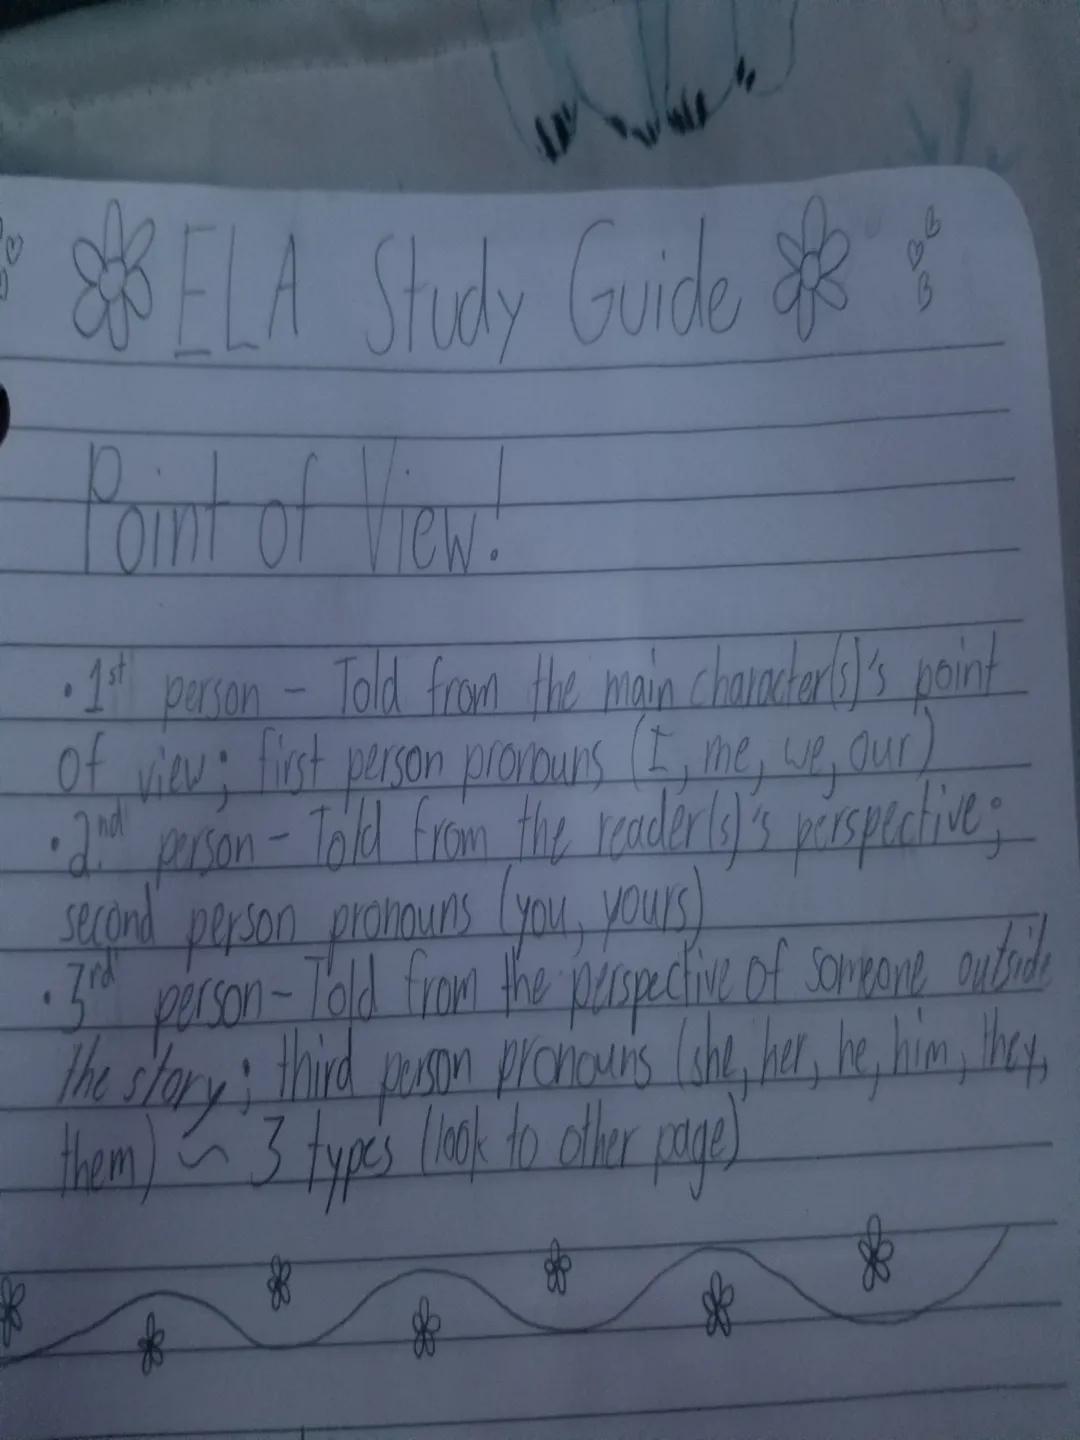 ELA Study Guide
Point of View!
• 1st person - Told from the main character(s)'s point
of view; first person pronouns (I, me, we, our)
• 2nd person - Told from the reader(s)'s perspective;
second person pronouns (you, yours)
• 3rd person - Told from the perspective of someone outside
the story; third person pronouns (she, her, he, him, they,
them) ~ 3 types (look to other page)